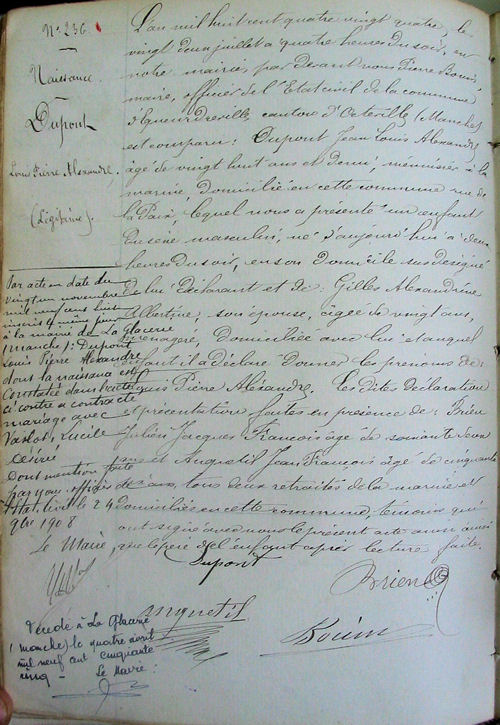 N° 236
Naissance
Dupont
Louis Pierre Alexandre,
(Légitime).
L'an mil huit cent quatre vingt quatre, le
vingt deux juillet à quatre heures du soir, en
notre mairie, par devant nous Pierre
maire, officier de l'Etat civil de la commune
d'Equeurdreville canton d'Octeville (Manche)
est comparu: Dupont Jean Louis Alexandre,
âgé de vingt huit ans et demi, menuisier à la
marine, domicilié en cette commune rue de
la Paix, lequel nous a présenté un enfant
du sexe masculin, né d'aujourd'hui à deux
heures du soir, en son domicile susdésigné
de lui déclarant et de Gilles Alexandrine
Albertine, son épouse, âgée de vingt ans,
ménagère, domiciliée avec lui et auquel
enfant il a déclaré donner les prénoms de:
Louis Pierre Alexandre. Les dites déclaration
et présentation faites en présence de: Brien
Julien Jacques François âgé de soixante deux
ans et Anquetil Jean François âgé de cinquante
ans, tous deux retraités de la marine et
domiciliés en cette commune, témoins qui
ont signé avec nous le présent acte ainsi
que le père de l'enfant après lecture faite.
Dupont
Brien
Anquetil
Par acte en date du
vingt un novembre
mil neuf cent huit
inscrit à
à la mairie de La Glacerie
(Manche): Dupont
Louis Pierre Alexandre
dont la naissance est
constatée dans l'acte
ci contre a contracté
mariage avec
Vastot, Lucile
Désiré
Dont mention faite
par nous officier de
l'état civil le 24
9bre 1908
Le Maire,
Décédé à La Glacerie
(Manche) le quatre
mil neuf cent cinquante
cinq -
Le Maire: